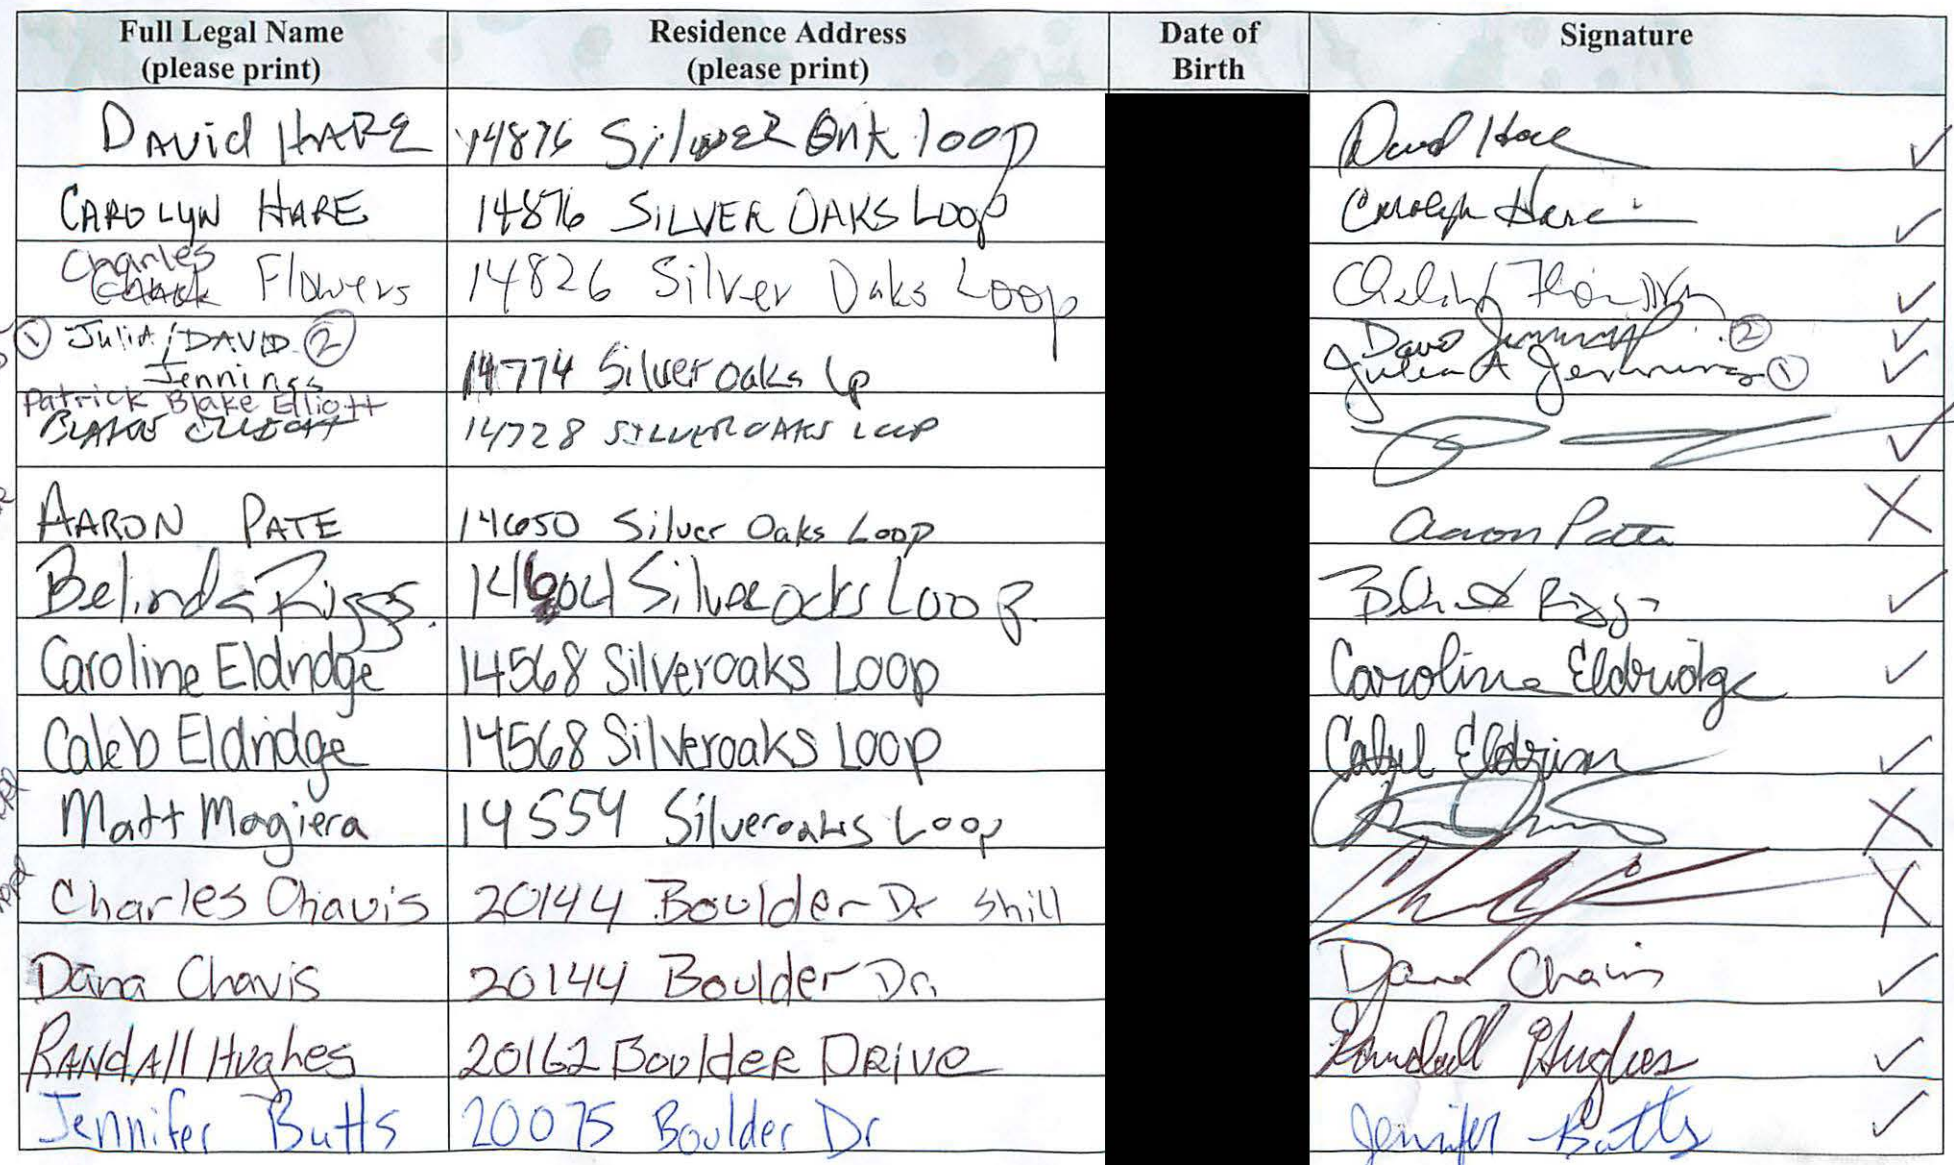 Full Legal Name Residence Address Date of Signature
(please print) (please print) Birth
DAVid HARE 14876 SilvER Oak loop David Hare ✓
CAROLYN HARE 14876 SILVER OAKS Loop Carolyn Hare ✓
Charles
Chuck Flowers 14826 Silver Oaks Loop ✓
① Julia/DAVID ② David Jennings ② ✓
Jennings 14774 Silver oaks Lp Julia A Jennings ① ✓
Patrick Blake Elliott
BLAKE ELLIOTT 14728 SILVER OAKS LOOP ✓
AARON PATE 14650 Silver Oaks Loop Aaron Pate X
Belinda Riggs. 14604 Silver oaks Loop. Belinda Riggs ✓
Caroline Eldridge 14568 Silveroaks Loop Caroline Eldridge ✓
Caleb Eldridge 14568 Silveroaks Loop Caleb Eldridge ✓
Matt Magiera 14554 Silveroaks Loop X
Charles Chavis 20144 Boulder Dr Shill X
Dana Chavis 20144 Boulder Dr. Dana Chavis ✓
RANdAll Hughes 20162 BouldER DRIVE Randall Hughes ✓
Jennifer Butts 20075 Boulder Dr Jennifer Butts ✓